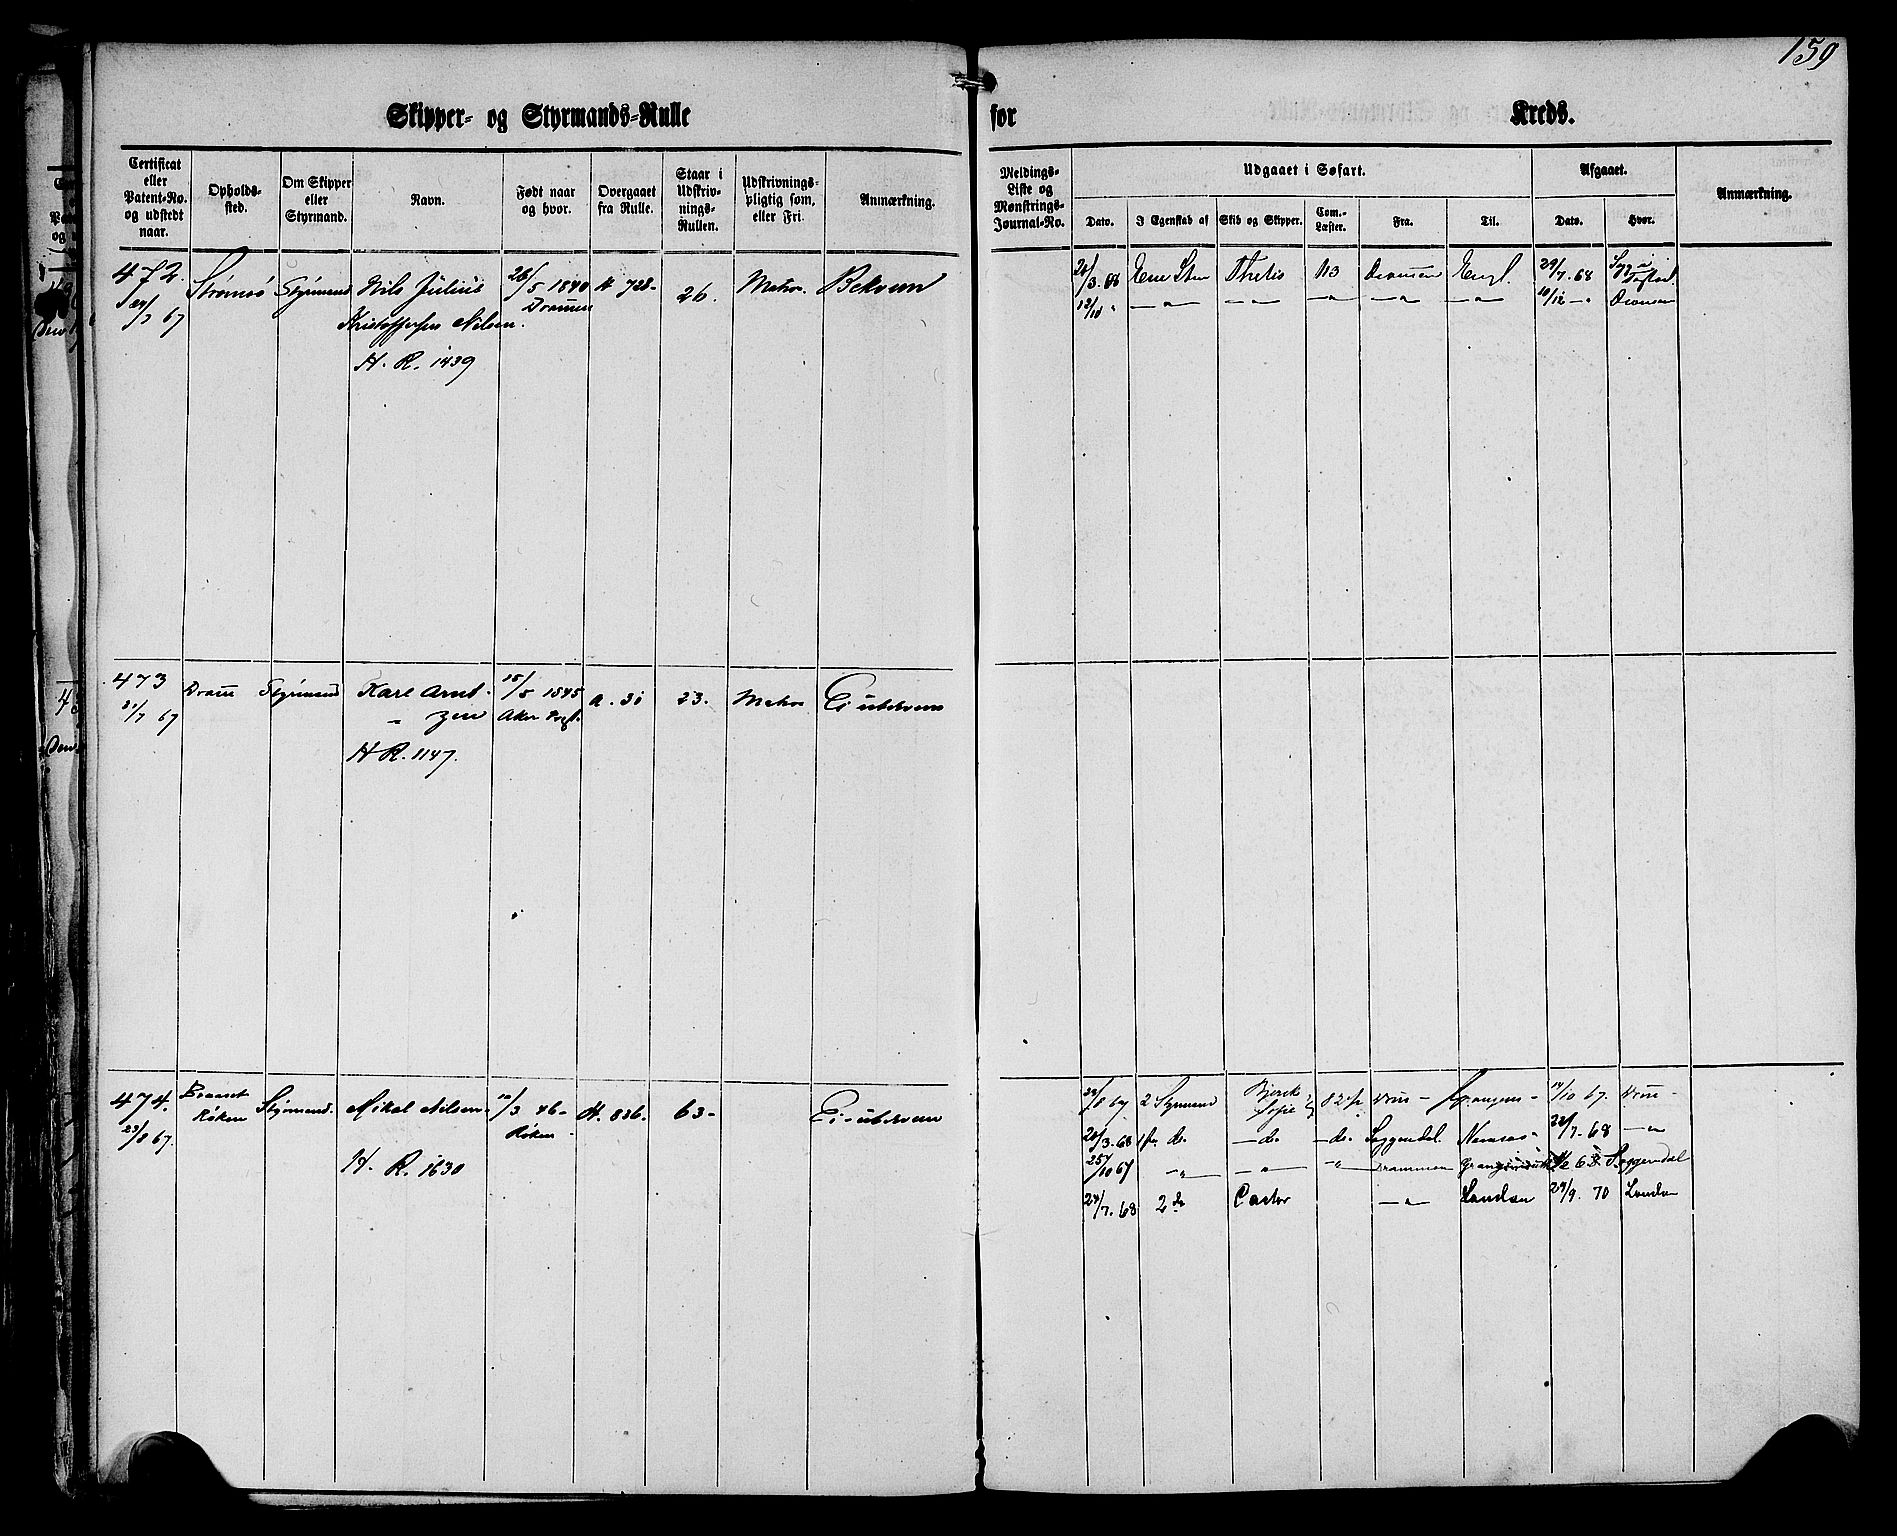 159
Skipper- og Styrmands-Rulle for Kreds.
Certificat eller Patent-No. og udstedt naar.
Opholds-sted.
Om Skipper eller Styrmand.
Navn.
Født naar og hvor.
Overgaaet fra Rulle.
Staar i Udskriv-nings-Rullen.
Udskrivnings-pligtig som, eller Fri.
Anmærkning.
Meldings-Liste og Mønstrings-Journal-No.
Udgaaet i Søfart.
Dato.
I Egenskab af
Skib og Skipper.
Com.-Læster.
Fra.
Til.
Afgaaet.
Dato.
Hvor.
Anmærkning.
472. Strømsø Styrmand Nils Julius 26/5 1840 H 728- 26. Matro. Bekvem
/7 67 Kristoffersen Nilsen. Drammen
H. R. 1439
20/3.68 Ene Stm Thetis 113 Drammen Engl. 29/7.68
12/10 " -"- -"- -"- -"- -"- 10/12 -" Drammen
473 Dram Styrmand Karl Arnt- 15/5 1845 A. 31 23. Matro Ei ubekvem
21/7 67 zen Aker
H R. 1147.
474. Røken Styrmand. Mikal Nilsen 10/3 46- H. 836. 63- Ei ubekvem
23/8 67. Røken
H. R. 1630
29/8 67 2 Styrmand Bjerck Sofie 82 14/10 67.
20/3.68 do. -do. -do. Soggendal 20/7.68 -"-
/10 67 -"- -"- -"- Drammen 68 Soggendal
24/7.68 2 do Castor -"- London 29/9. 70 London